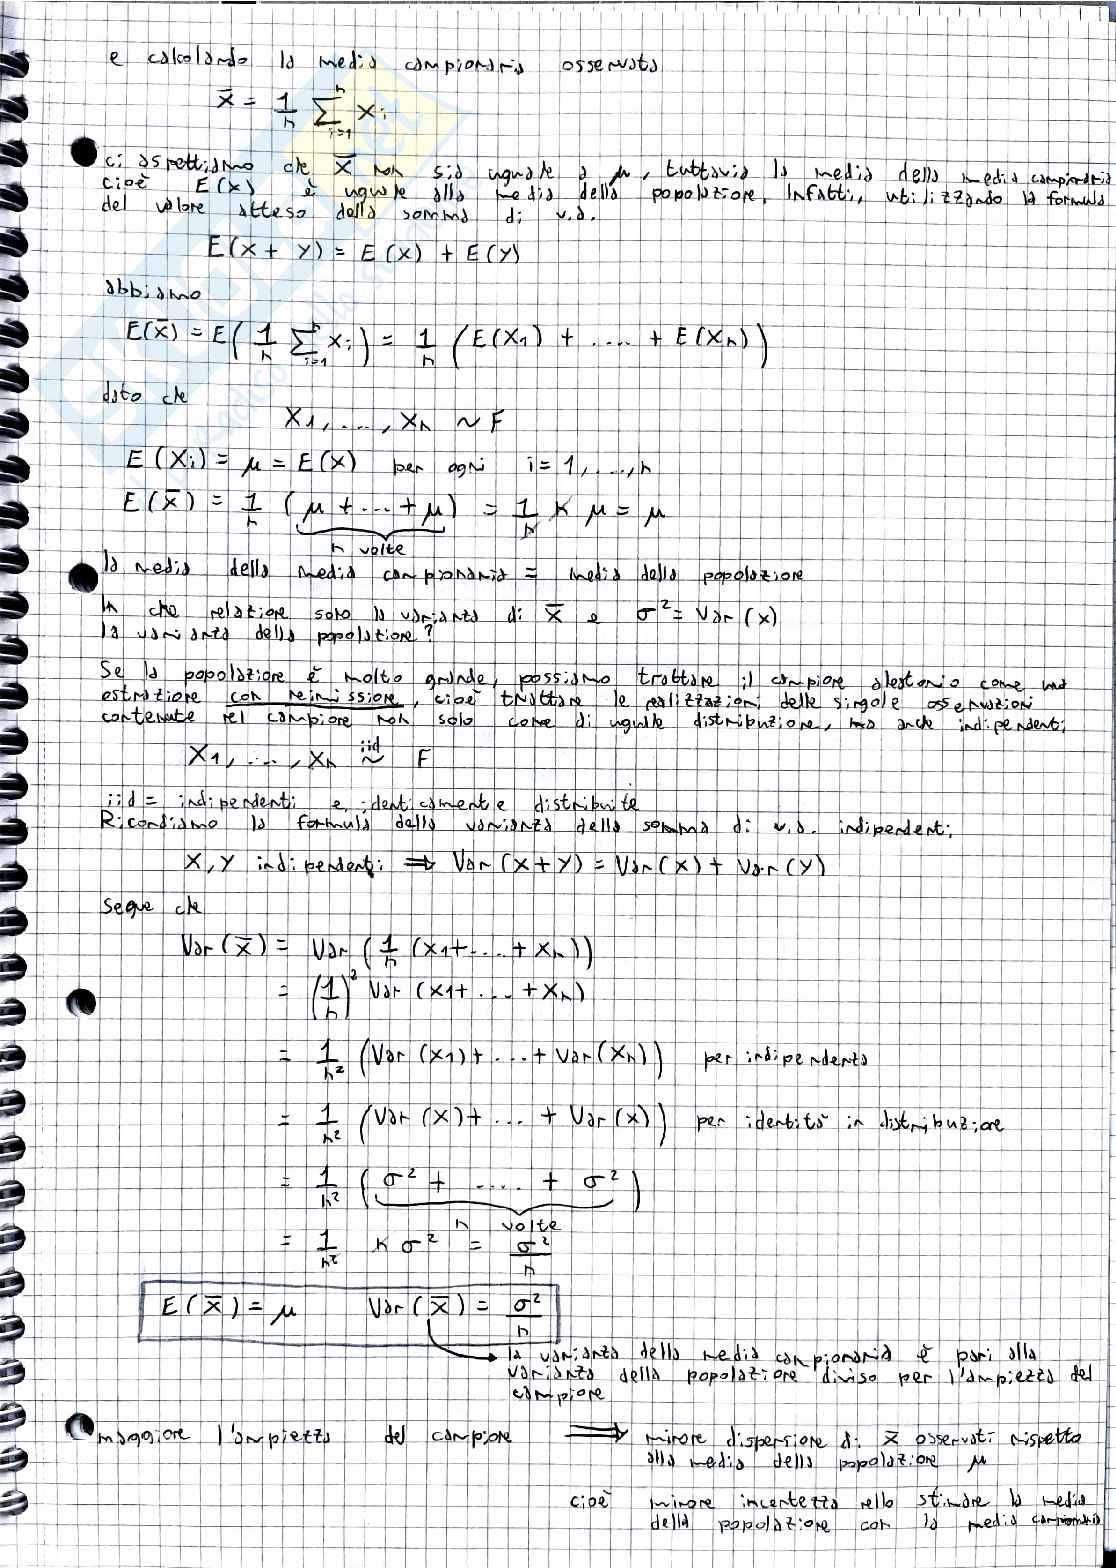 e calcolando la media campionaria osservata
x̄ = 1/n Σ_{i=1}^{n} x_i
ci aspettiamo che x̄ non sia uguale a μ, tuttavia la media della media campionaria
cioè E(x) è uguale alla media della popolazione. Infatti, utilizzando la formula
del valore atteso della somma di v.a.
E(X + Y) = E(X) + E(Y)
abbiamo
E(x̄) = E(1/n Σ_{i=1}^{n} x_i) = 1/n (E(X1) + .... + E(Xn))
dato che
X1, ..., Xn ~ F
E(Xi) = μ = E(X) per ogni i = 1, ..., n
E(x̄) = 1/n (μ + ... + μ) = 1/n n μ = μ
n volte
la media della media campionaria = media della popolazione
In che relazione sono la varianza di x̄ e σ² = Var(x)
la varianza della popolazione?
Se la popolazione è molto grande, possiamo trattare il campione aleatorio come una
estrazione con reimissione, cioè trattare le realizzazioni delle singole osservazioni
contenute nel campione non solo come di uguale distribuzione, ma anche indipendenti
X1, ..., Xn iid ~ F
iid = indipendenti e identicamente distribuite
Ricordiamo la formula della varianza della somma di v.a. indipendenti
X, Y indipendenti ⇒ Var(X+Y) = Var(X) + Var(Y)
Segue che
Var(x̄) = Var(1/n (X1+....+Xn))
= (1/n)² Var(X1+....+Xn)
= 1/n² (Var(X1)+...+Var(Xn)) per indipendenza
= 1/n² (Var(X)+...+Var(X)) per identità in distribuzione
= 1/n² (σ² + .... + σ²)
n volte
= 1/n² n σ² = σ²/n
E(x̄) = μ Var(x̄) = σ²/n
la varianza della media campionaria è pari alla
varianza della popolazione diviso per l'ampiezza del
campione
maggiore l'ampiezza del campione ⇒ minore dispersione di x̄ osservati rispetto
alla media della popolazione μ
cioè minore incertezza nello stimare la media
della popolazione con la media campionaria